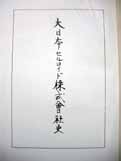 大日本セルロイド株式會社史